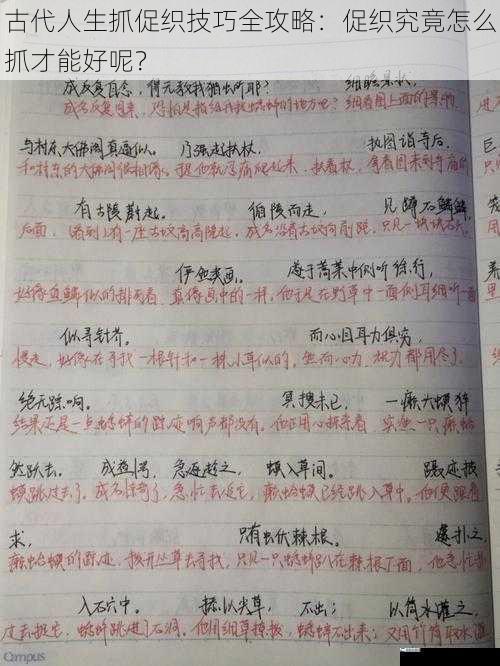 古代人生抓促织技巧全攻略：促织究竟怎么
抓才能好呢？
成反复自念，得无教我猎虫所耶？ 细瞻景状，
成名反复思来，恐怕是指给我捉蟋蟀的地方吧？细看图上面的景物，
与村东大佛阁真逼似。 乃强起扶杖， 执图诣寺后，
和村东的大佛阁很相像。
有古陵蔚起。 循陵而走， 见蹲石鳞鳞，
后面，
俨然类画。 遂于蒿莱中侧听徐行，
好像鱼鳞似的排列着，真像画中的一样。他于是在野草中一面侧耳细听一面
似寻针芥。 而心目耳力俱穷，
慢走，好像在寻找一根针和一株小芥似的。然而心力、视力都用尽了，
绝无踪响。 冥搜未已， 一癞头蟆猝
结果还是一点蟋蟀的踪迹响声都没有。他正用心探寻着，突然一只癞蛤
然跃去。 成益愕， 急逐趁之， 蟆入草间。 蹑迹披
蟆跳过去了。成名惊奇了，急忙去追它，癞蛤蟆已经跳入草中。他便跟着
求， 见有虫伏棘根。 遽扑之，
癞蛤蟆的踪迹，拨开丛草去寻找，只见一只蟋蟀趴在棘根下面，他急忙
入石穴中。 掭以尖草， 不出； 以筒水灌之，
过去捉它，蟋蟀跳进了石洞。他用细草撩拨，蟋蟀不出来；又用竹筒取水灌
Campus